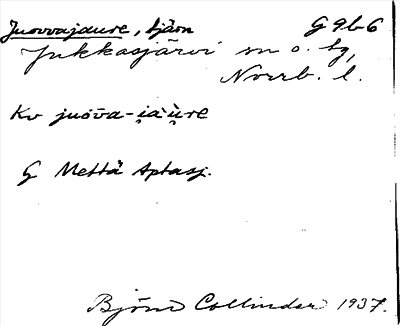 Juovvajaure, tjärn G 9b6
Jukkasjärvi sn o. tg,
Norrb. l.
Kv juōva-i̯àu̯re
G Mettä Aptasj.
Björn Collinder 1937.